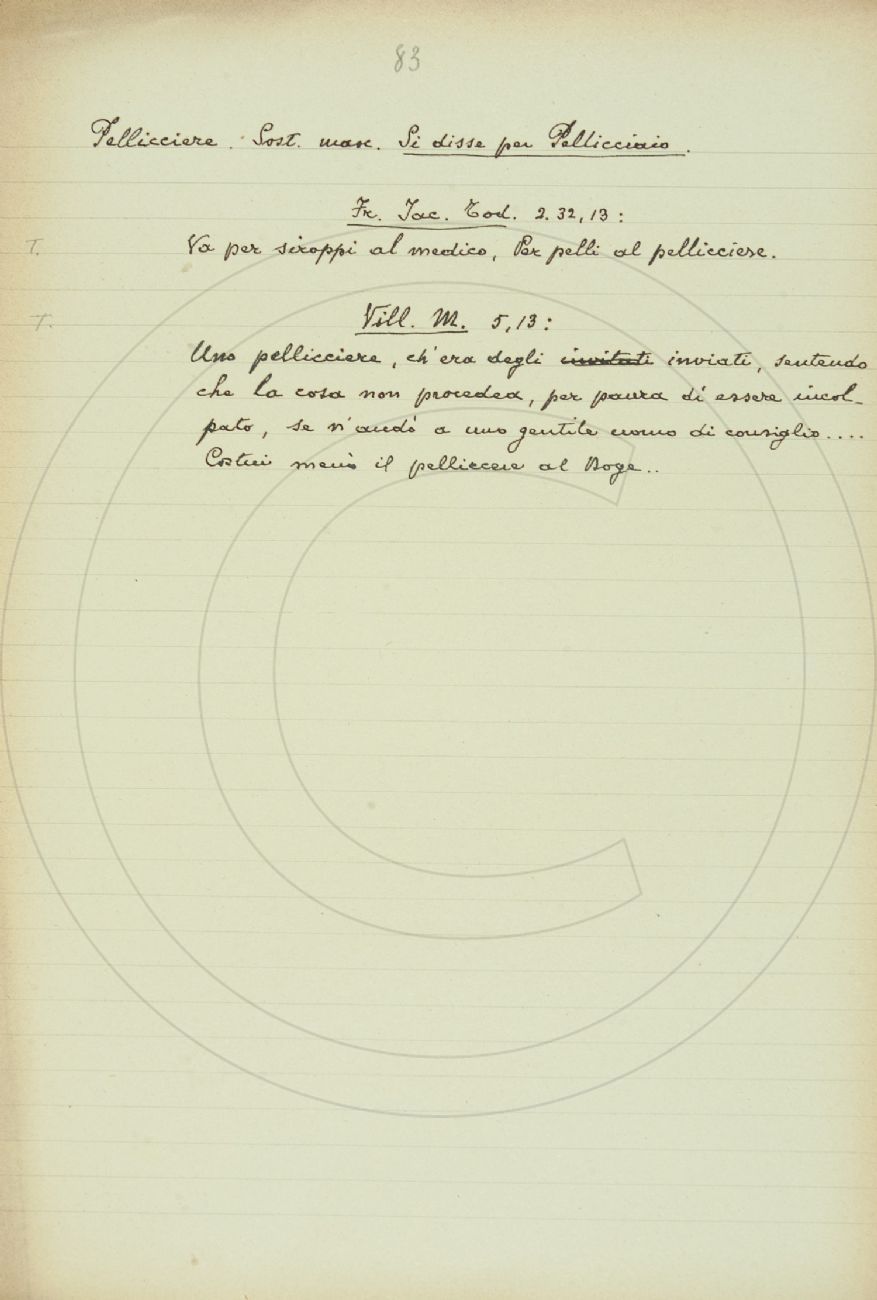 83
Pellicciere. Sost. masc. Si disse per Pellicciaio.
Fr. Jac. Tod. 2.32,13:
T. Va per siroppi al medico, Per pelli al pellicciere.
T. Vill. M. 5,13:
Uno pellicciere, ch'era degli invitati inviati, sentendo
che la cosa non procedea, per paura di essere incol-
pato, se n'andò a uno gentile uomo di consiglio....
Costui menò il pelliccere al Doge..